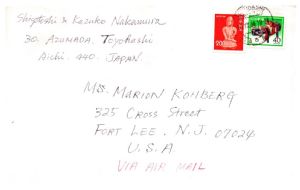 Shigetoshi & Kazuko Nakamura
30. AZUMADA, Toyohashi
Aichi. 440. JAPAN
200
40
MS. MARION KOHBERG
325 Cross Street
FORT LEE, N.J. 07024
U.S.A
VIA AIR MAIL